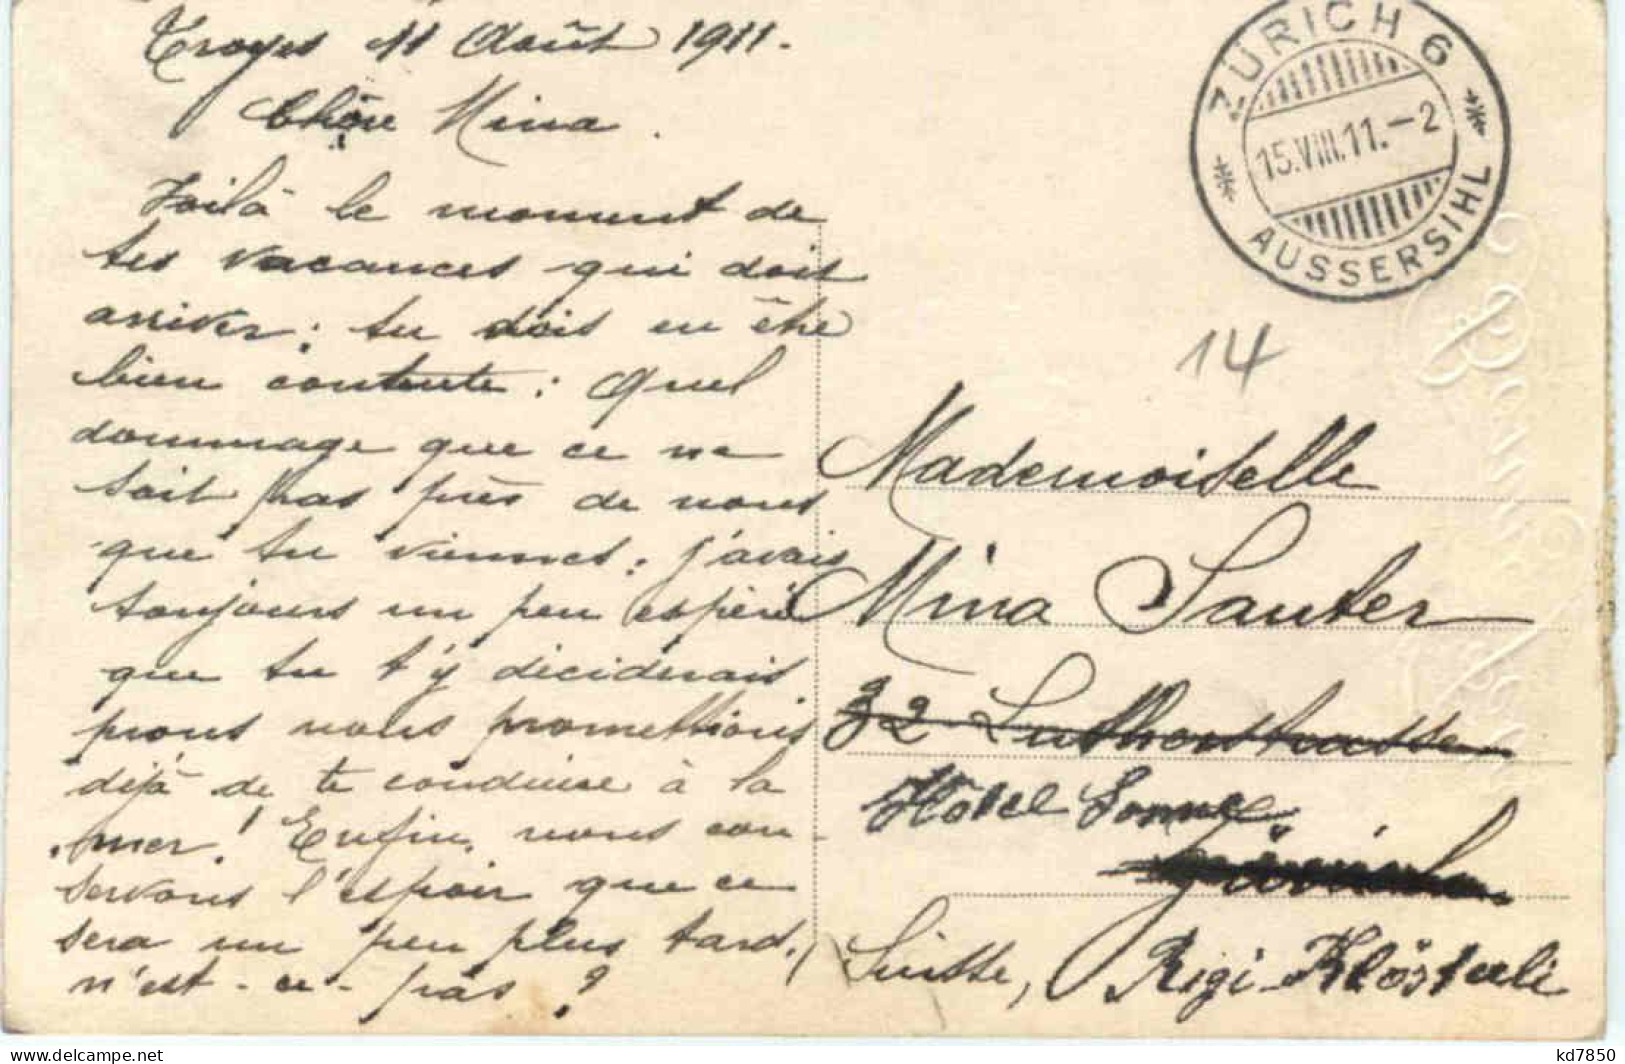 Troyes 11 Août 1911.
Chère Mina.
Voilà le moment de
tes vacances qui doit
arriver; tu dois en être
bien contente: Quel
dommage que ce ne
soit pas près de nous
que tu viennes; j'avais
toujours un peu espéré
que tu t'y déciderais
nous promettions
déjà de te conduire à la
mer! Enfin, nous con-
servons l'espoir que ce
sera un peu plus tard,
n'est-ce-pas?
ZÜRICH 6
15.VIII.11.-2
AUSSERSIHL
14
Bonne
Mademoiselle
Mina Sauter
32 Lutherstrasse
Hôtel Sonne
Suisse, Rigi-Klösterli
kd7850